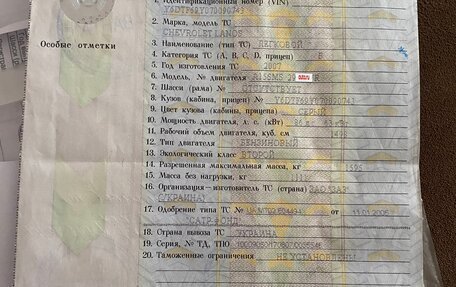 1. Идентификационный номер (VIN)
Y6DTF69Y070090743
2. Марка, модель ТС
CHEVROLET LANOS
Особые отметки
3. Наименование (тип ТС) ЛЕГКОВОЙ
4. Категория ТС (A, B, C, D, прицеп) B
5. Год изготовления ТС 2007
6. Модель, № двигателя
7. Шасси (рама) № ОТСУТСТВУЕТ
8. Кузов (кабина, прицеп) № Y6DTF69Y070090743
9. Цвет кузова (кабины, прицепа) СЕРЫЙ
10. Мощность двигателя, л. с. (кВт) 86
11. Рабочий объем двигателя, куб. см 1498
12. Тип двигателя БЕНЗИНОВЫЙ
13. Экологический класс ВТОРОЙ
14. Разрешенная максимальная масса, кг 1595
15. Масса без нагрузки, кг
16. Организация - изготовитель ТС (страна) ЗАО "ЗАЗ"
(УКРАИНА)
17. Одобрение типа ТС № от
"САТР-ФОНД"
18. Страна вывоза ТС УКРАИНА
19. Серия, № ТД, ТПО
20. Таможенные ограничения НЕ УСТАНОВЛЕНЫ